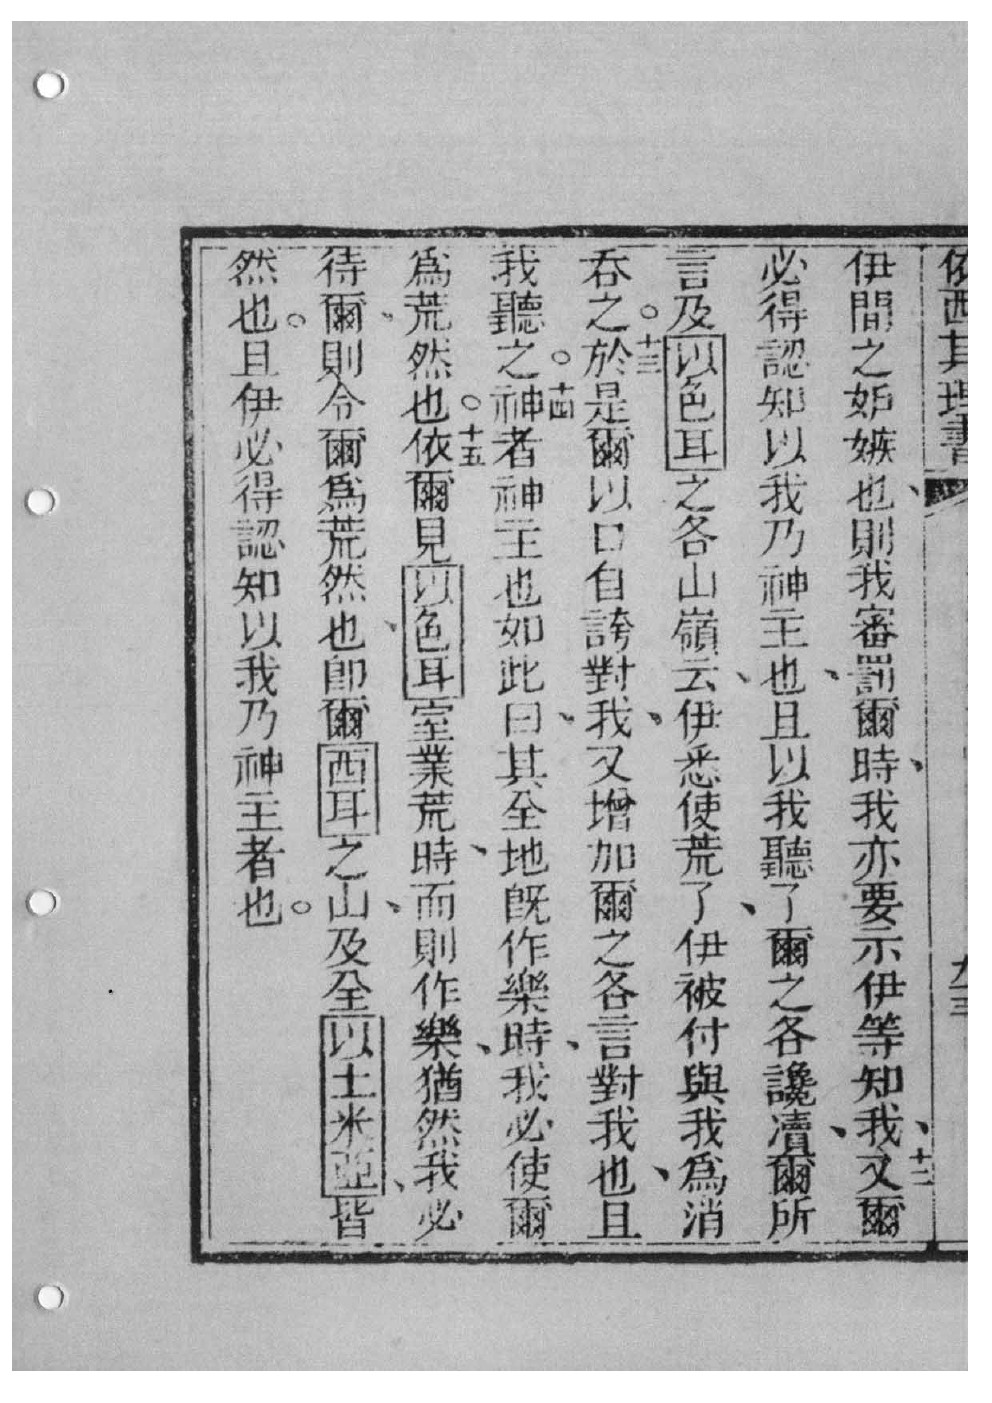 依西其理書
九三
伊間之妬嫉也、則我審罰爾時、我亦要示伊等知我、十二又爾
必得認知以我乃神主也、且以我聽了爾之各讒凟、爾所
言及以色耳之各山嶺云、伊悉使荒了、伊被付與我爲消
吞之。十三於是爾以口自誇對我、又增加爾之各言對我也、且
我聽之。十四神者神主也如此曰、其全地旣作樂時、我必使爾
爲荒然也。十五依爾見以色耳室業荒時、而則作樂、猶然我必
待爾、則令爾爲荒然也、卽爾西耳之山、及全以土米亞、皆
然也。且伊必得認知以我乃神主者也。